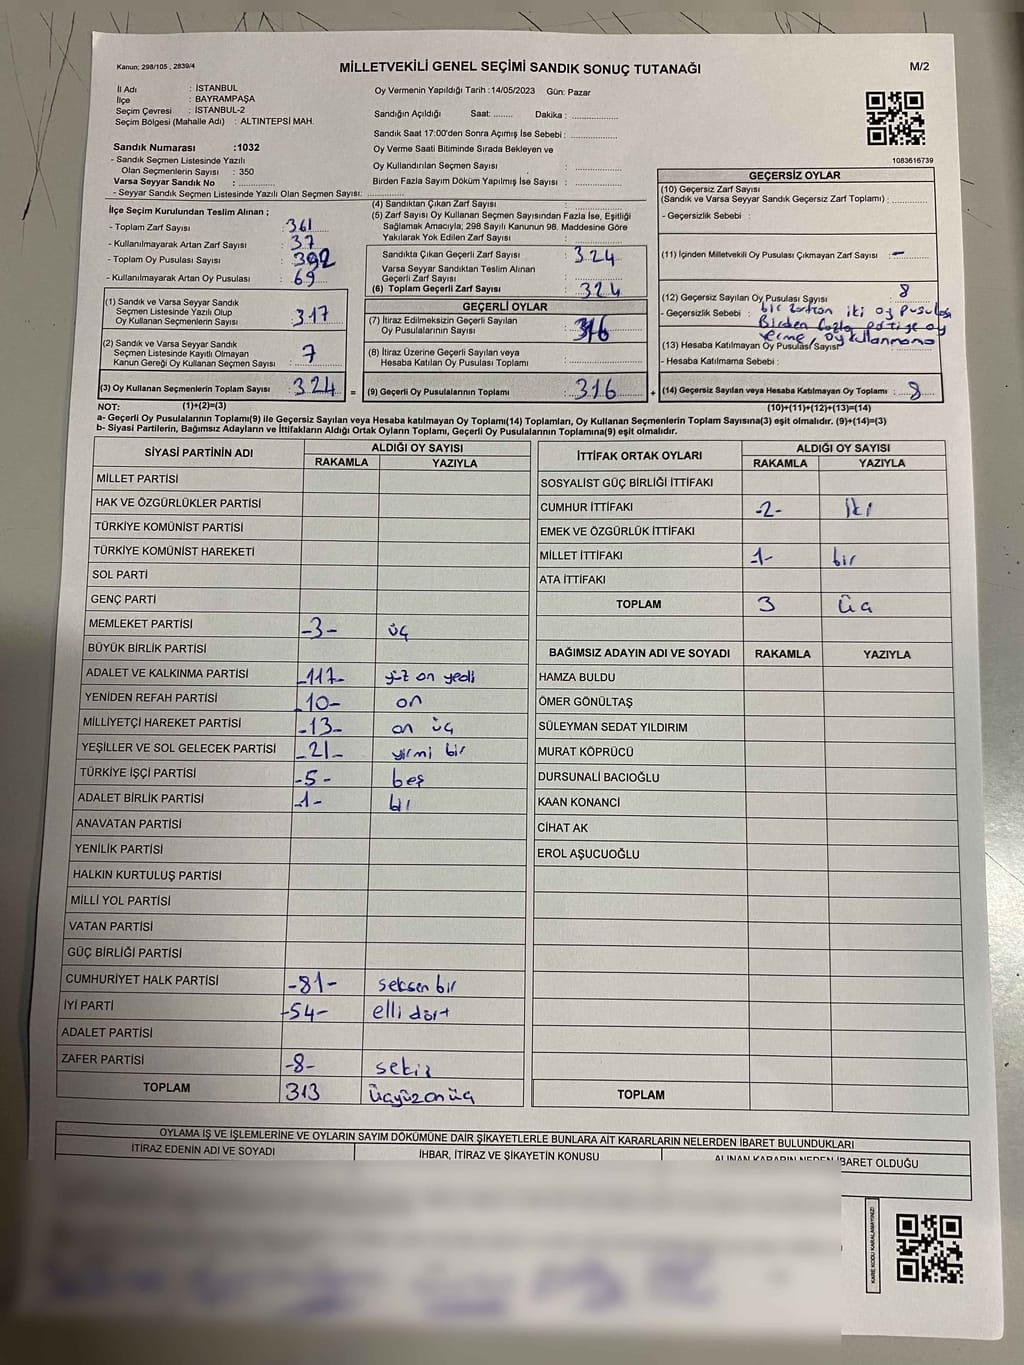 Kanun; 298/105 , 2839/4
MİLLETVEKİLİ GENEL SEÇİMİ SANDIK SONUÇ TUTANAĞI
M/2
İl Adı : İSTANBUL
İlçe : BAYRAMPAŞA
Seçim Çevresi : İSTANBUL-2
Seçim Bölgesi (Mahalle Adı) : ALTINTEPSİ MAH.
Oy Vermenin Yapıldığı Tarih :14/05/2023 Gün: Pazar
Sandığın Açıldığı Saat: ........ Dakika : ..............
Sandık Saat 17:00'den Sonra Açımış İse Sebebi : ..............
Oy Verme Saati Bitiminde Sırada Bekleyen ve
Oy Kullandırılan Seçmen Sayısı : ..............
Birden Fazla Sayım Döküm Yapılmış İse Sayısı : ..............
1083616739
Sandık Numarası :1032
- Sandık Seçmen Listesinde Yazılı
Olan Seçmenlerin Sayısı : 350
Varsa Seyyar Sandık No : ............
- Seyyar Sandık Seçmen Listesinde Yazılı Olan Seçmen Sayısı: ............
İlçe Seçim Kurulundan Teslim Alınan ;
- Toplam Zarf Sayısı : 361
- Kullanılmayarak Artan Zarf Sayısı : 37
- Toplam Oy Pusulası Sayısı : 392
- Kullanılmayarak Artan Oy Pusulası : 69
(1) Sandık ve Varsa Seyyar Sandık
Seçmen Listesinde Yazılı Olup
Oy Kullanan Seçmenlerin Sayısı : 317
(2) Sandık ve Varsa Seyyar Sandık
Seçmen Listesinde Kayıtlı Olmayan
Kanun Gereği Oy Kullanan Seçmen Sayısı : 7
(3) Oy Kullanan Seçmenlerin Toplam Sayısı : 324 =
(1)+(2)=(3)
(4) Sandıktan Çıkan Zarf Sayısı : ............
(5) Zarf Sayısı Oy Kullanan Seçmen Sayısından Fazla İse, Eşitliği
Sağlamak Amacıyla; 298 Sayılı Kanunun 98. Maddesine Göre
Yakılarak Yok Edilen Zarf Sayısı : ............
Sandıkta Çıkan Geçerli Zarf Sayısı : 324
Varsa Seyyar Sandıktan Teslim Alınan
Geçerli Zarf Sayısı : ............
(6) Toplam Geçerli Zarf Sayısı : 324
GEÇERLİ OYLAR
(7) İtiraz Edilmeksizin Geçerli Sayılan
Oy Pusulalarının Sayısı : 316
(8) İtiraz Üzerine Geçerli Sayılan veya
Hesaba Katılan Oy Pusulası Toplamı : ............
(9) Geçerli Oy Pusulalarının Toplamı : 316 +
GEÇERSİZ OYLAR
(10) Geçersiz Zarf Sayısı
(Sandık ve Varsa Seyyar Sandık Geçersiz Zarf Toplamı) : .........
- Geçersizlik Sebebi :
(11) İçinden Milletvekili Oy Pusulası Çıkmayan Zarf Sayısı : -
(12) Geçersiz Sayılan Oy Pusulası Sayısı : 8
- Geçersizlik Sebebi : bir zarftan iki oy pusulası
Birden fazla partiye oy
verme, oy kullanmama
(13) Hesaba Katılmayan Oy Pusulası Sayısı
- Hesaba Katılmama Sebebi :
(14) Geçersiz Sayılan veya Hesaba Katılmayan Oy Toplamı : 8
(10)+(11)+(12)+(13)=(14)
NOT:
a- Geçerli Oy Pusulalarının Toplamı(9) ile Geçersiz Sayılan veya Hesaba katılmayan Oy Toplamı(14) Toplamları, Oy Kullanan Seçmenlerin Toplam Sayısına(3) eşit olmalıdır. (9)+(14)=(3)
b- Siyasi Partilerin, Bağımsız Adayların ve İttifakların Aldığı Ortak Oyların Toplamı, Geçerli Oy Pusulalarının Toplamına(9) eşit olmalıdır.
SİYASİ PARTİNİN ADI ALDIĞI OY SAYISI
RAKAMLA YAZIYLA
MİLLET PARTİSİ
HAK VE ÖZGÜRLÜKLER PARTİSİ
TÜRKİYE KOMÜNİST PARTİSİ
TÜRKİYE KOMÜNİST HAREKETİ
SOL PARTİ
GENÇ PARTİ
MEMLEKET PARTİSİ -3- üç
BÜYÜK BİRLİK PARTİSİ
ADALET VE KALKINMA PARTİSİ -117- yüz on yedi
YENİDEN REFAH PARTİSİ -10- on
MİLLİYETÇİ HAREKET PARTİSİ -13- on üç
YEŞİLLER VE SOL GELECEK PARTİSİ -21- yirmi bir
TÜRKİYE İŞÇİ PARTİSİ -5- beş
ADALET BİRLİK PARTİSİ -1- bir
ANAVATAN PARTİSİ
YENİLİK PARTİSİ
HALKIN KURTULUŞ PARTİSİ
MİLLİ YOL PARTİSİ
VATAN PARTİSİ
GÜÇ BİRLİĞİ PARTİSİ
CUMHURİYET HALK PARTİSİ -81- seksen bir
İYİ PARTİ -54- elli dört
ADALET PARTİSİ
ZAFER PARTİSİ -8- sekiz
TOPLAM 313 üçyüzonüç
İTTİFAK ORTAK OYLARI ALDIĞI OY SAYISI
RAKAMLA YAZIYLA
SOSYALİST GÜÇ BİRLİĞİ İTTİFAKI
CUMHUR İTTİFAKI -2- iki
EMEK VE ÖZGÜRLÜK İTTİFAKI
MİLLET İTTİFAKI -1- bir
ATA İTTİFAKI
TOPLAM 3 üç
BAĞIMSIZ ADAYIN ADI VE SOYADI RAKAMLA YAZIYLA
HAMZA BULDU
ÖMER GÖNÜLTAŞ
SÜLEYMAN SEDAT YILDIRIM
MURAT KÖPRÜCÜ
DURSUNALİ BACIOĞLU
KAAN KONANCİ
CİHAT AK
EROL AŞUCUOĞLU
TOPLAM
OYLAMA İŞ VE İŞLEMLERİNE VE OYLARIN SAYIM DÖKÜMÜNE DAİR ŞİKAYETLERLE BUNLARA AİT KARARLARIN NELERDEN İBARET BULUNDUKLARI
İTİRAZ EDENİN ADI VE SOYADI İHBAR, İTİRAZ VE ŞİKAYETİN KONUSU ALINAN KARARIN NEDEN İBARET OLDUĞU
KARE KODU KARALAMAYINIZ!